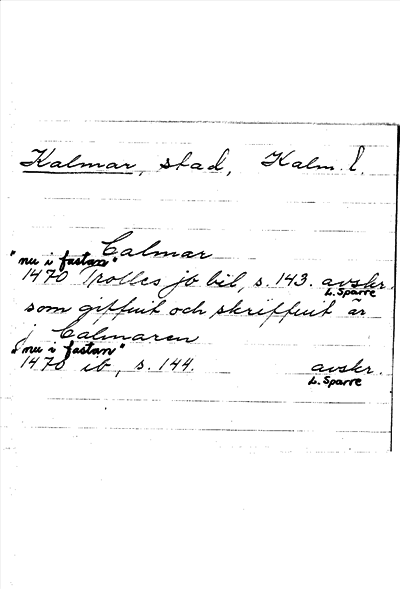 Kalmar, stad, Kalm. l.
Calmar
"nu i fastan"
1470 Trolles jo bil, s. 143. avskr.
L. Sparre
som giffuit och skriffuit är
j Calmaren
"nu i fastan"
1470 ib, s. 144. avskr.
L. Sparre